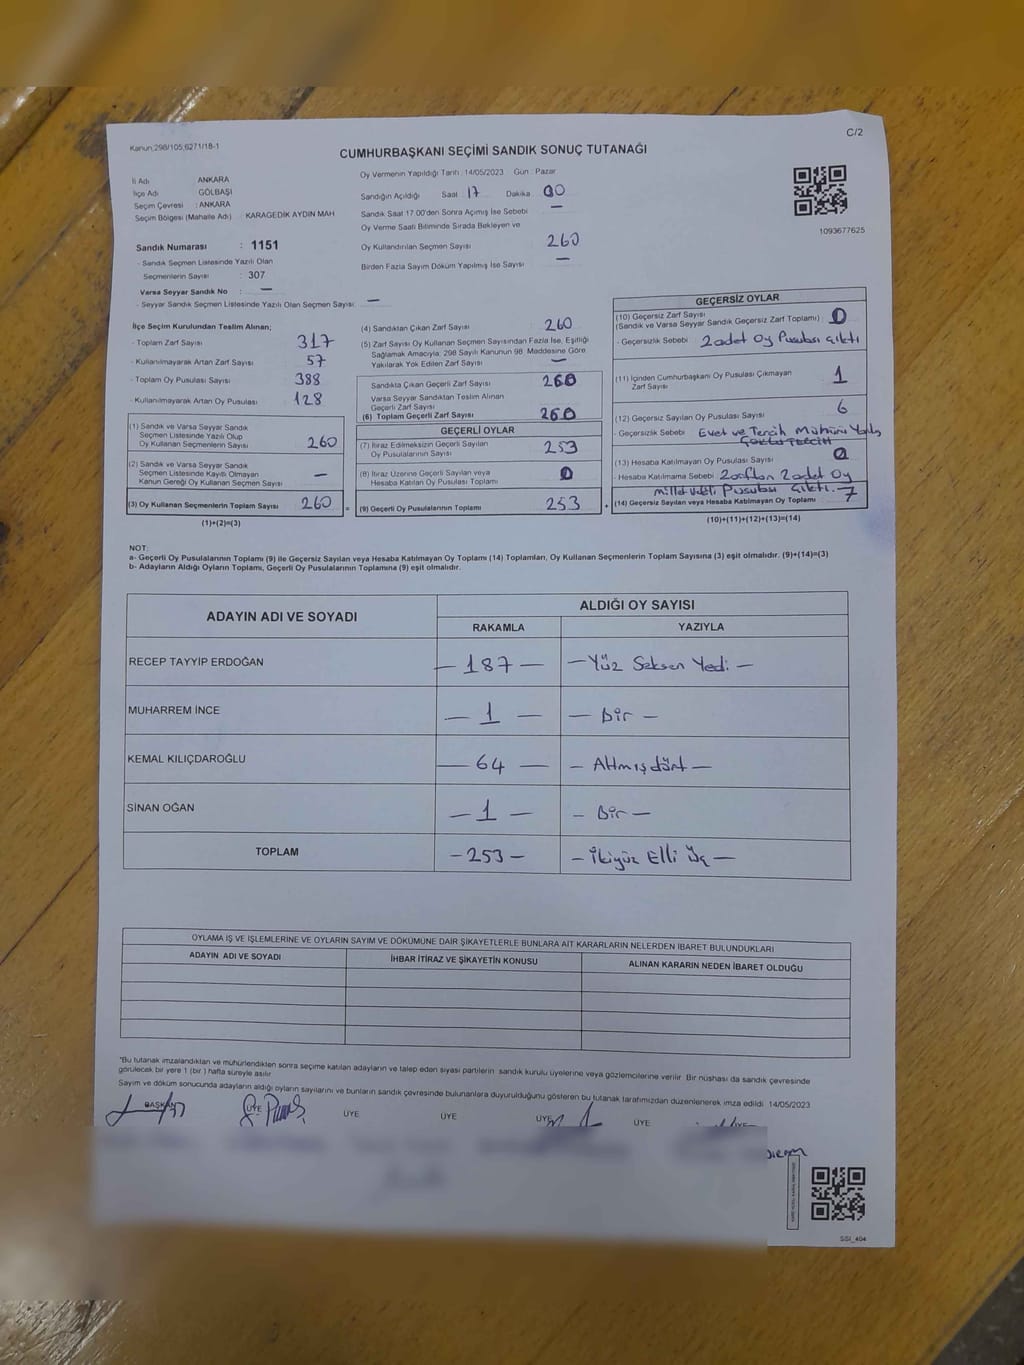 Kanun;298/105,6271/18-1
C/2
CUMHURBAŞKANI SEÇİMİ SANDIK SONUÇ TUTANAĞI
İl Adı ANKARA
İlçe Adı GÖLBAŞI
Seçim Çevresi : ANKARA
Seçim Bölgesi (Mahalle Adı) : KARAGEDİK AYDIN MAH
Sandık Numarası : 1151
- Sandık Seçmen Listesinde Yazılı Olan
Seçmenlerin Sayısı : 307
Varsa Seyyar Sandık No : —
- Seyyar Sandık Seçmen Listesinde Yazılı Olan Seçmen Sayısı: —
Oy Vermenin Yapıldığı Tarih : 14/05/2023 Gün : Pazar
Sandığın Açıldığı Saat 17 Dakika 00
Sandık Saat 17.00'den Sonra Açımış İse Sebebi —
Oy Verme Saati Bitiminde Sırada Bekleyen ve
Oy Kullandırılan Seçmen Sayısı 260
Birden Fazla Sayım Döküm Yapılmış İse Sayısı —
1093677625
İlçe Seçim Kurulundan Teslim Alınan;
- Toplam Zarf Sayısı 317
- Kullanılmayarak Artan Zarf Sayısı 57
- Toplam Oy Pusulası Sayısı 388
- Kullanılmayarak Artan Oy Pusulası 128
(1) Sandık ve Varsa Seyyar Sandık
Seçmen Listesinde Yazılı Olup
Oy Kullanan Seçmenlerin Sayısı 260
(2) Sandık ve Varsa Seyyar Sandık
Seçmen Listesinde Kayıtlı Olmayan
Kanun Gereği Oy Kullanan Seçmen Sayısı —
(3) Oy Kullanan Seçmenlerin Toplam Sayısı 260 =
(1)+(2)=(3)
(4) Sandıktan Çıkan Zarf Sayısı 260
(5) Zarf Sayısı Oy Kullanan Seçmen Sayısından Fazla İse, Eşitliği
Sağlamak Amacıyla; 298 Sayılı Kanunun 98. Maddesine Göre
Yakılarak Yok Edilen Zarf Sayısı —
Sandıkta Çıkan Geçerli Zarf Sayısı 260
Varsa Seyyar Sandıktan Teslim Alınan
Geçerli Zarf Sayısı
(6) Toplam Geçerli Zarf Sayısı 260
GEÇERLİ OYLAR
(7) İtiraz Edilmeksizin Geçerli Sayılan
Oy Pusulalarının Sayısı 253
(8) İtiraz Üzerine Geçerli Sayılan veya
Hesaba Katılan Oy Pusulası Toplamı 0
(9) Geçerli Oy Pusulalarının Toplamı 253 +
GEÇERSİZ OYLAR
(10) Geçersiz Zarf Sayısı
(Sandık ve Varsa Seyyar Sandık Geçersiz Zarf Toplamı) : 0
- Geçersizlik Sebebi 2 adet Oy Pusulası çıktı
(11) İçinden Cumhurbaşkanı Oy Pusulası Çıkmayan
Zarf Sayısı 1
(12) Geçersiz Sayılan Oy Pusulası Sayısı 6
- Geçersizlik Sebebi Evet ve Tercih Mührü
(13) Hesaba Katılmayan Oy Pusulası Sayısı 0
- Hesaba Katılmama Sebebi Zarftan 2 adet Oy
Milletvekili Pusulası çıktı.
(14) Geçersiz Sayılan veya Hesaba Katılmayan Oy Toplamı 7
(10)+(11)+(12)+(13)=(14)
NOT:
a- Geçerli Oy Pusulalarının Toplamı (9) ile Geçersiz Sayılan veya Hesaba Katılmayan Oy Toplamı (14) Toplamları, Oy Kullanan Seçmenlerin Toplam Sayısına (3) eşit olmalıdır. (9)+(14)=(3)
b- Adayların Aldığı Oyların Toplamı, Geçerli Oy Pusulalarının Toplamına (9) eşit olmalıdır.
ADAYIN ADI VE SOYADI ALDIĞI OY SAYISI
RAKAMLA YAZIYLA
RECEP TAYYİP ERDOĞAN — 187 — — Yüz Seksen Yedi —
MUHARREM İNCE — 1 — — Bir —
KEMAL KILIÇDAROĞLU — 64 — — Altmış dört —
SİNAN OĞAN — 1 — — Bir —
TOPLAM — 253 — — İkiyüz Elli Üç —
OYLAMA İŞ VE İŞLEMLERİNE VE OYLARIN SAYIM VE DÖKÜMÜNE DAİR ŞİKAYETLERLE BUNLARA AİT KARARLARIN NELERDEN İBARET BULUNDUKLARI
ADAYIN ADI VE SOYADI İHBAR İTİRAZ VE ŞİKAYETİN KONUSU ALINAN KARARIN NEDEN İBARET OLDUĞU
"Bu tutanak imzalandıktan ve mühürlendikten sonra seçime katılan adayların ve talep eden siyasi partilerin sandık kurulu üyelerine veya gözlemcilerine verilir. Bir nüshası da sandık çevresinde
görülecek bir yere 1 (bir ) hafta süreyle asılır
Sayım ve döküm sonucunda adayların aldığı oyların sayılarını ve bunların sandık çevresinde bulunanlara duyurulduğunu gösteren bu tutanak tarafımızdan düzenlenerek imza edildi 14/05/2023
BAŞKAN ÜYE ÜYE ÜYE ÜYE ÜYE ÜYE
SSI_404